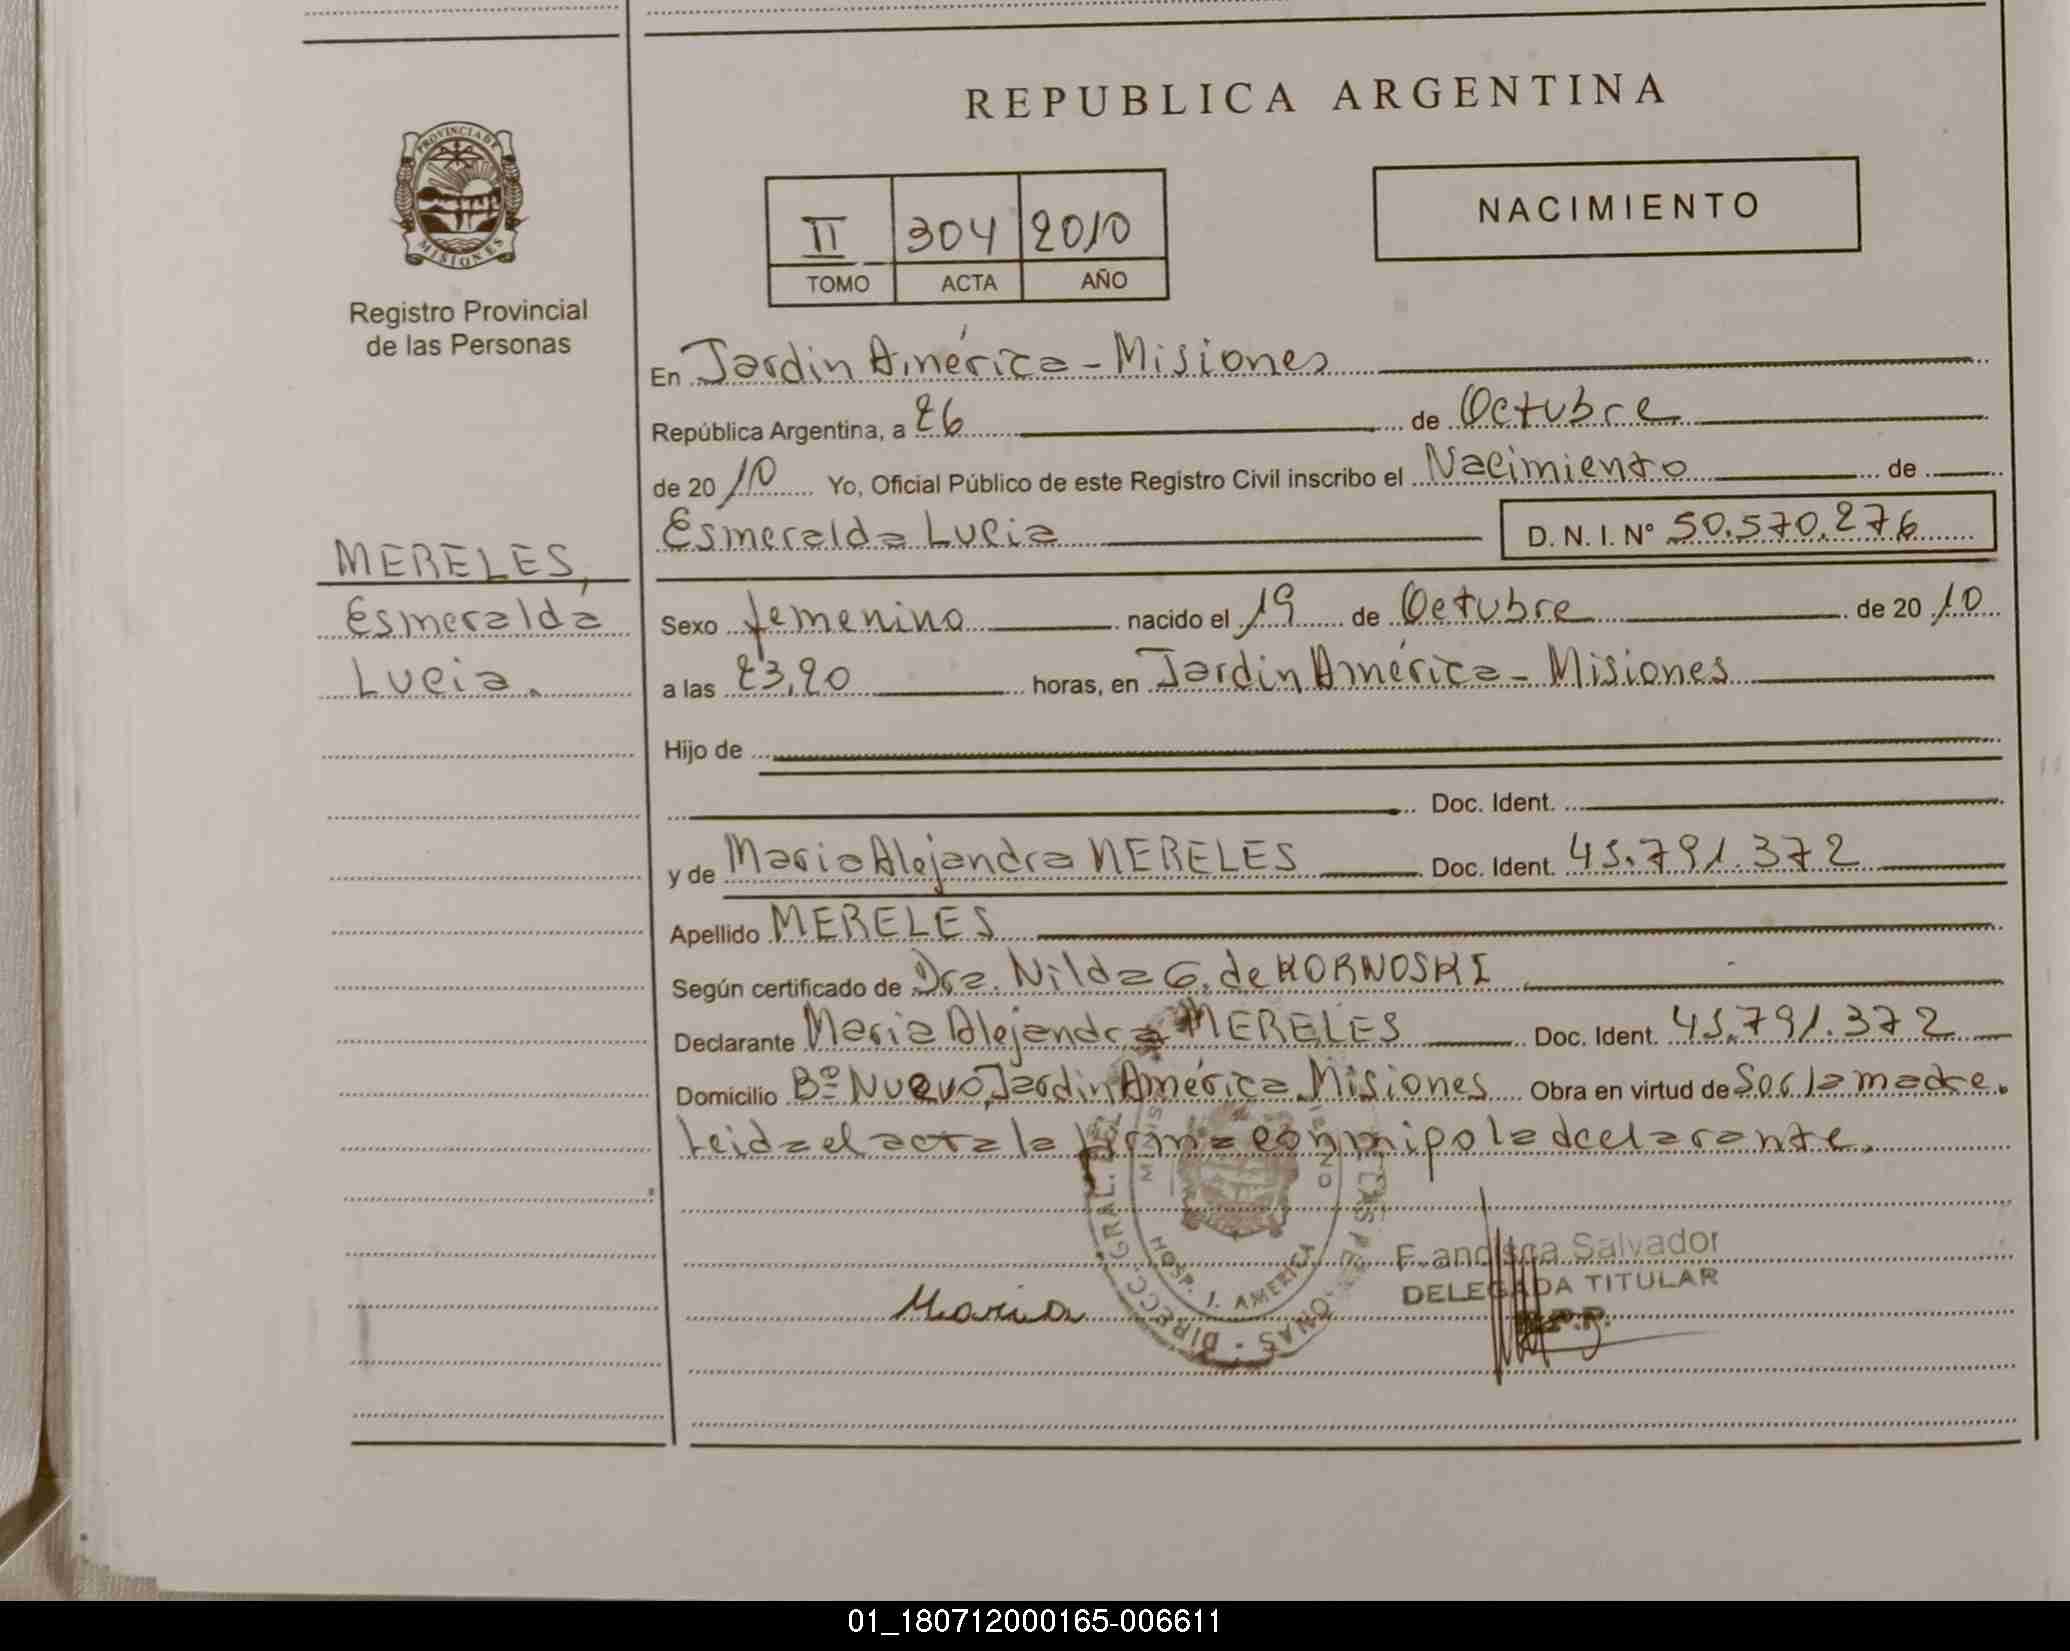 REPUBLICA ARGENTINA
PROVINCIA DE
MISIONES
Registro Provincial
de las Personas
II 304 2010
TOMO ACTA AÑO
NACIMIENTO
En Jardín América - Misiones
República Argentina, a 26 de Octubre
de 2010 Yo, Oficial Público de este Registro Civil inscribo el Nacimiento de
Esmeralda Lucia D.N.I. N° 50.570.276
MERELES,
Esmeralda
Lucia.
Sexo femenino nacido el 19 de Octubre de 2010
a las 23,20 horas, en Jardin América - Misiones
Hijo de
Doc. Ident.
y de Maria Alejandra MERELES Doc. Ident. 45.791.372
Apellido MERELES
Según certificado de Dra. Nilda G. de KORNOSKI
Declarante Maria Alejandra MERELES Doc. Ident. 45.791.372
Domicilio Bº Nuevo, Jardin América Misiones Obra en virtud de Ser la madre.
Leida el acta la firma conmigo la declarante.
DIRECC. GRAL.
HOSP. J. AMERICA
Francisca Salvador
DELEGADA TITULAR
R.P.P.
Maria
01_180712000165-006611